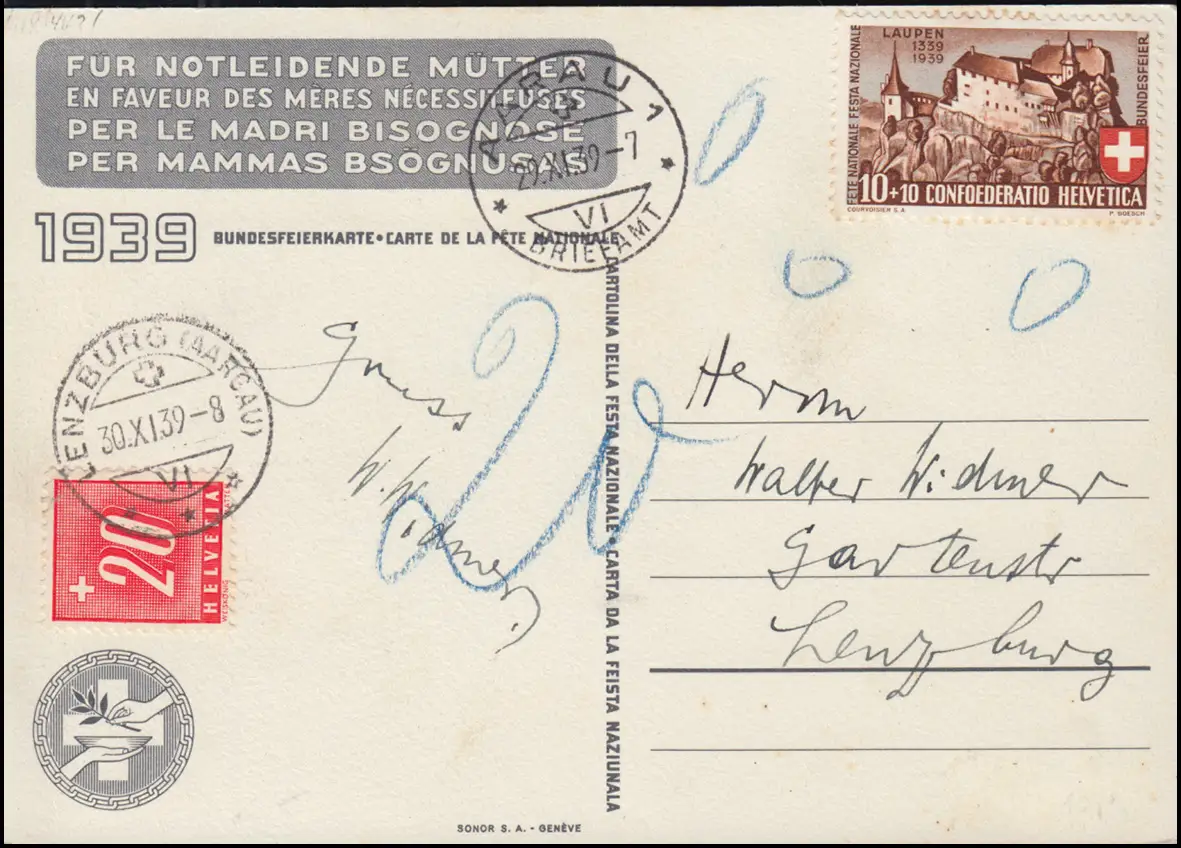 FÜR NOTLEIDENDE MÜTTER
EN FAVEUR DES MÈRES NÉCESSITEUSES
PER LE MADRI BISOGNOSE
PER MAMMAS BSÖGNUSAS
1939 BUNDESFEIERKARTE • CARTE DE LA FÊTE NATIONALE
CARTOLINA DELLA FESTA NAZIONALE • CARTA DA LA FEISTA NAZIUNALA
AARAU 1
29.XI.39-7
VI
BRIEFAMT
LAUPEN
1339
1939
FÊTE NATIONALE FESTA NAZIONALE
BUNDESFEIER
10+10 CONFOEDERATIO HELVETICA
COURVOISIER S.A. P. BOESCH
LENZBURG (AARGAU)
30.XI.39-8
VI
+20
HELVETIA
20
Gruess
W. Widmer
Herrn
Walter Widmer
Gartenstr
Lenzburg
SONOR S. A. - GENÈVE